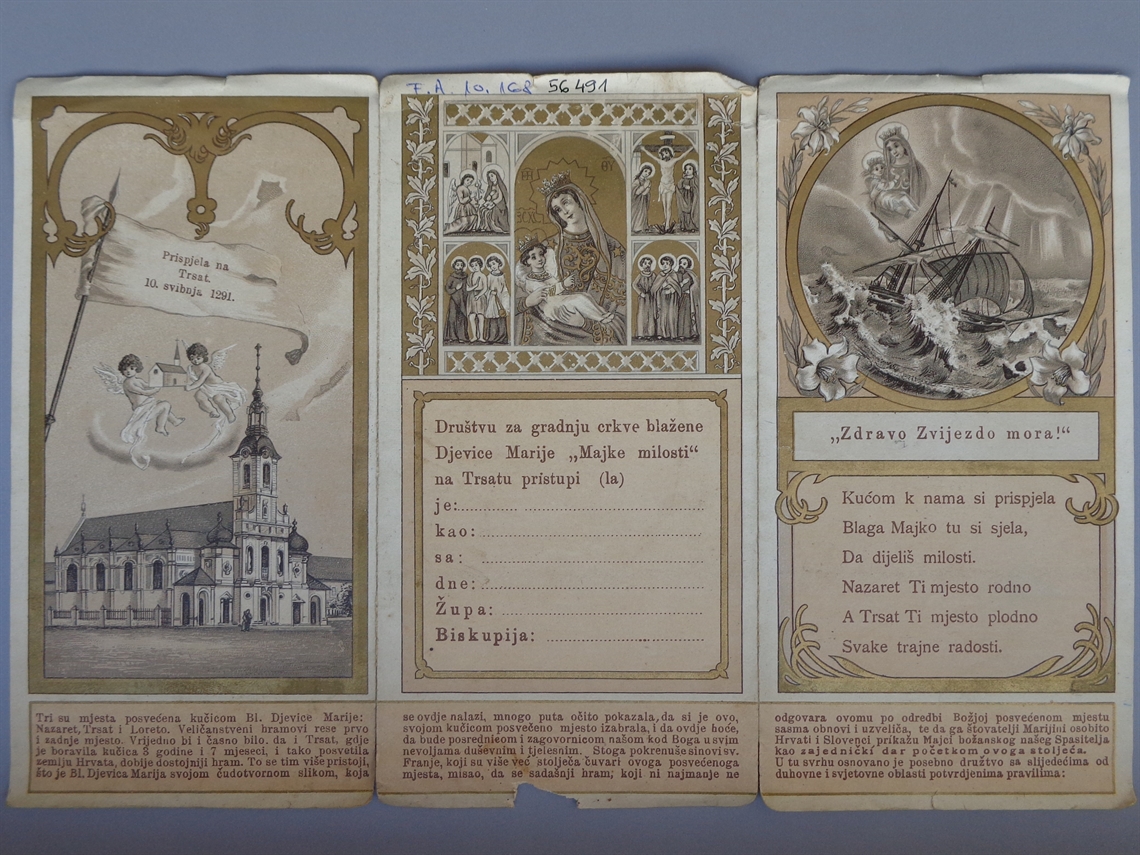 F. A. 10. 168 56491
Prispjela na
Trsat.
10. svibnja 1291.
Tri su mjesta posvećena kućicom Bl. Djevice Marije:
Nazaret, Trsat i Loreto. Veličanstveni hramovi rese prvo
i zadnje mjesto. Vrijedno bi i časno bilo, da i Trsat, gdje
je boravila kućica 3 godine i 7 mjeseci, i tako posvetila
zemlju Hrvata, dobije dostojniji hram. To se tim više pristoji,
što je Bl. Djevica Marija svojom čudotvornom slikom, koja
Društvu za gradnju crkve blažene
Djevice Marije „Majke milosti“
na Trsatu pristupi (la)
je:
kao:
sa:
dne:
Župa:
Biskupija:
se ovdje nalazi, mnogo puta očito pokazala, da si je ovo,
svojom kućicom posvećeno mjesto izabrala, i da ovdje hoće,
da bude posrednicom i zagovornicom našom kod Boga u svim
nevoljama duševnim i tjelesnim. Stoga pokrenuše sinovi sv.
Franje, koji su više već stoljeća čuvari ovoga posvećenoga
mjesta, misao, da se sadašnji hram, koji ni najmanje ne
„Zdravo Zvijezdo mora!“
Kućom k nama si prispjela
Blaga Majko tu si sjela,
Da dijeliš milosti.
Nazaret Ti mjesto rodno
A Trsat Ti mjesto plodno
Svake trajne radosti.
odgovara ovomu po odredbi Božjoj posvećenom mjestu
sasma obnovi i uzveliča, te da ga štovatelji Marijini osobito
Hrvati i Slovenci prikažu Majci božanskog našeg Spasitelja
kao zajednički dar početkom ovoga stoljeća.
U tu svrhu osnovano je posebno društvo sa slijedećim od
duhovne i svjetovne oblasti potvrdjenima pravilima: